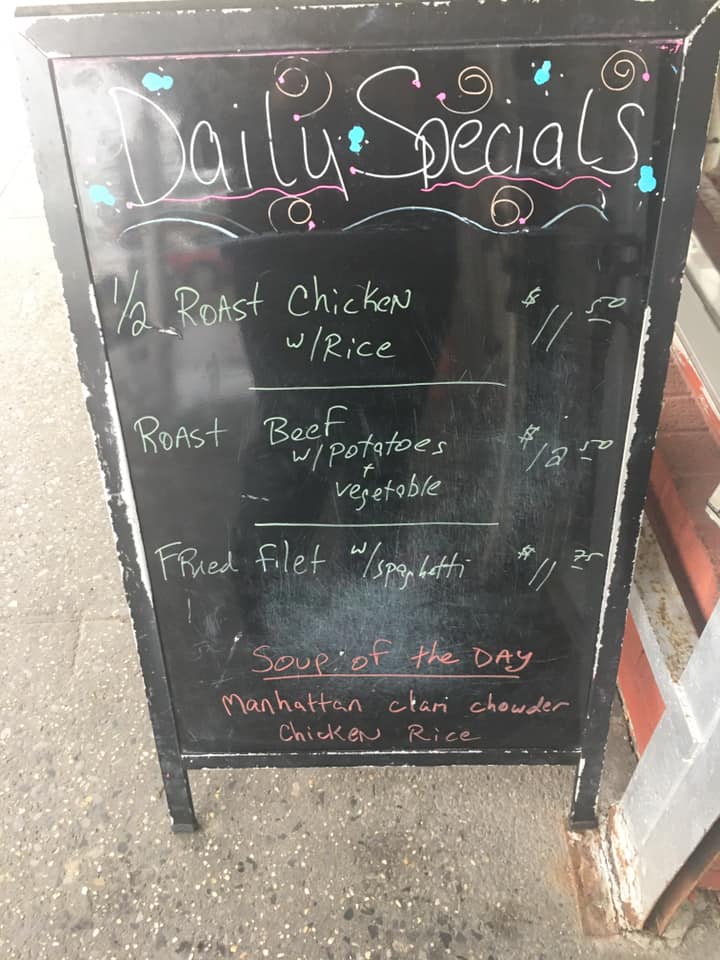 Daily Specials
1/2 Roast Chicken $11.50
w/Rice
Roast Beef $12.50
w/potatoes
+
vegetable
Fried filet w/spaghetti $11.75
Soup of the Day
Manhattan clam chowder
Chicken Rice